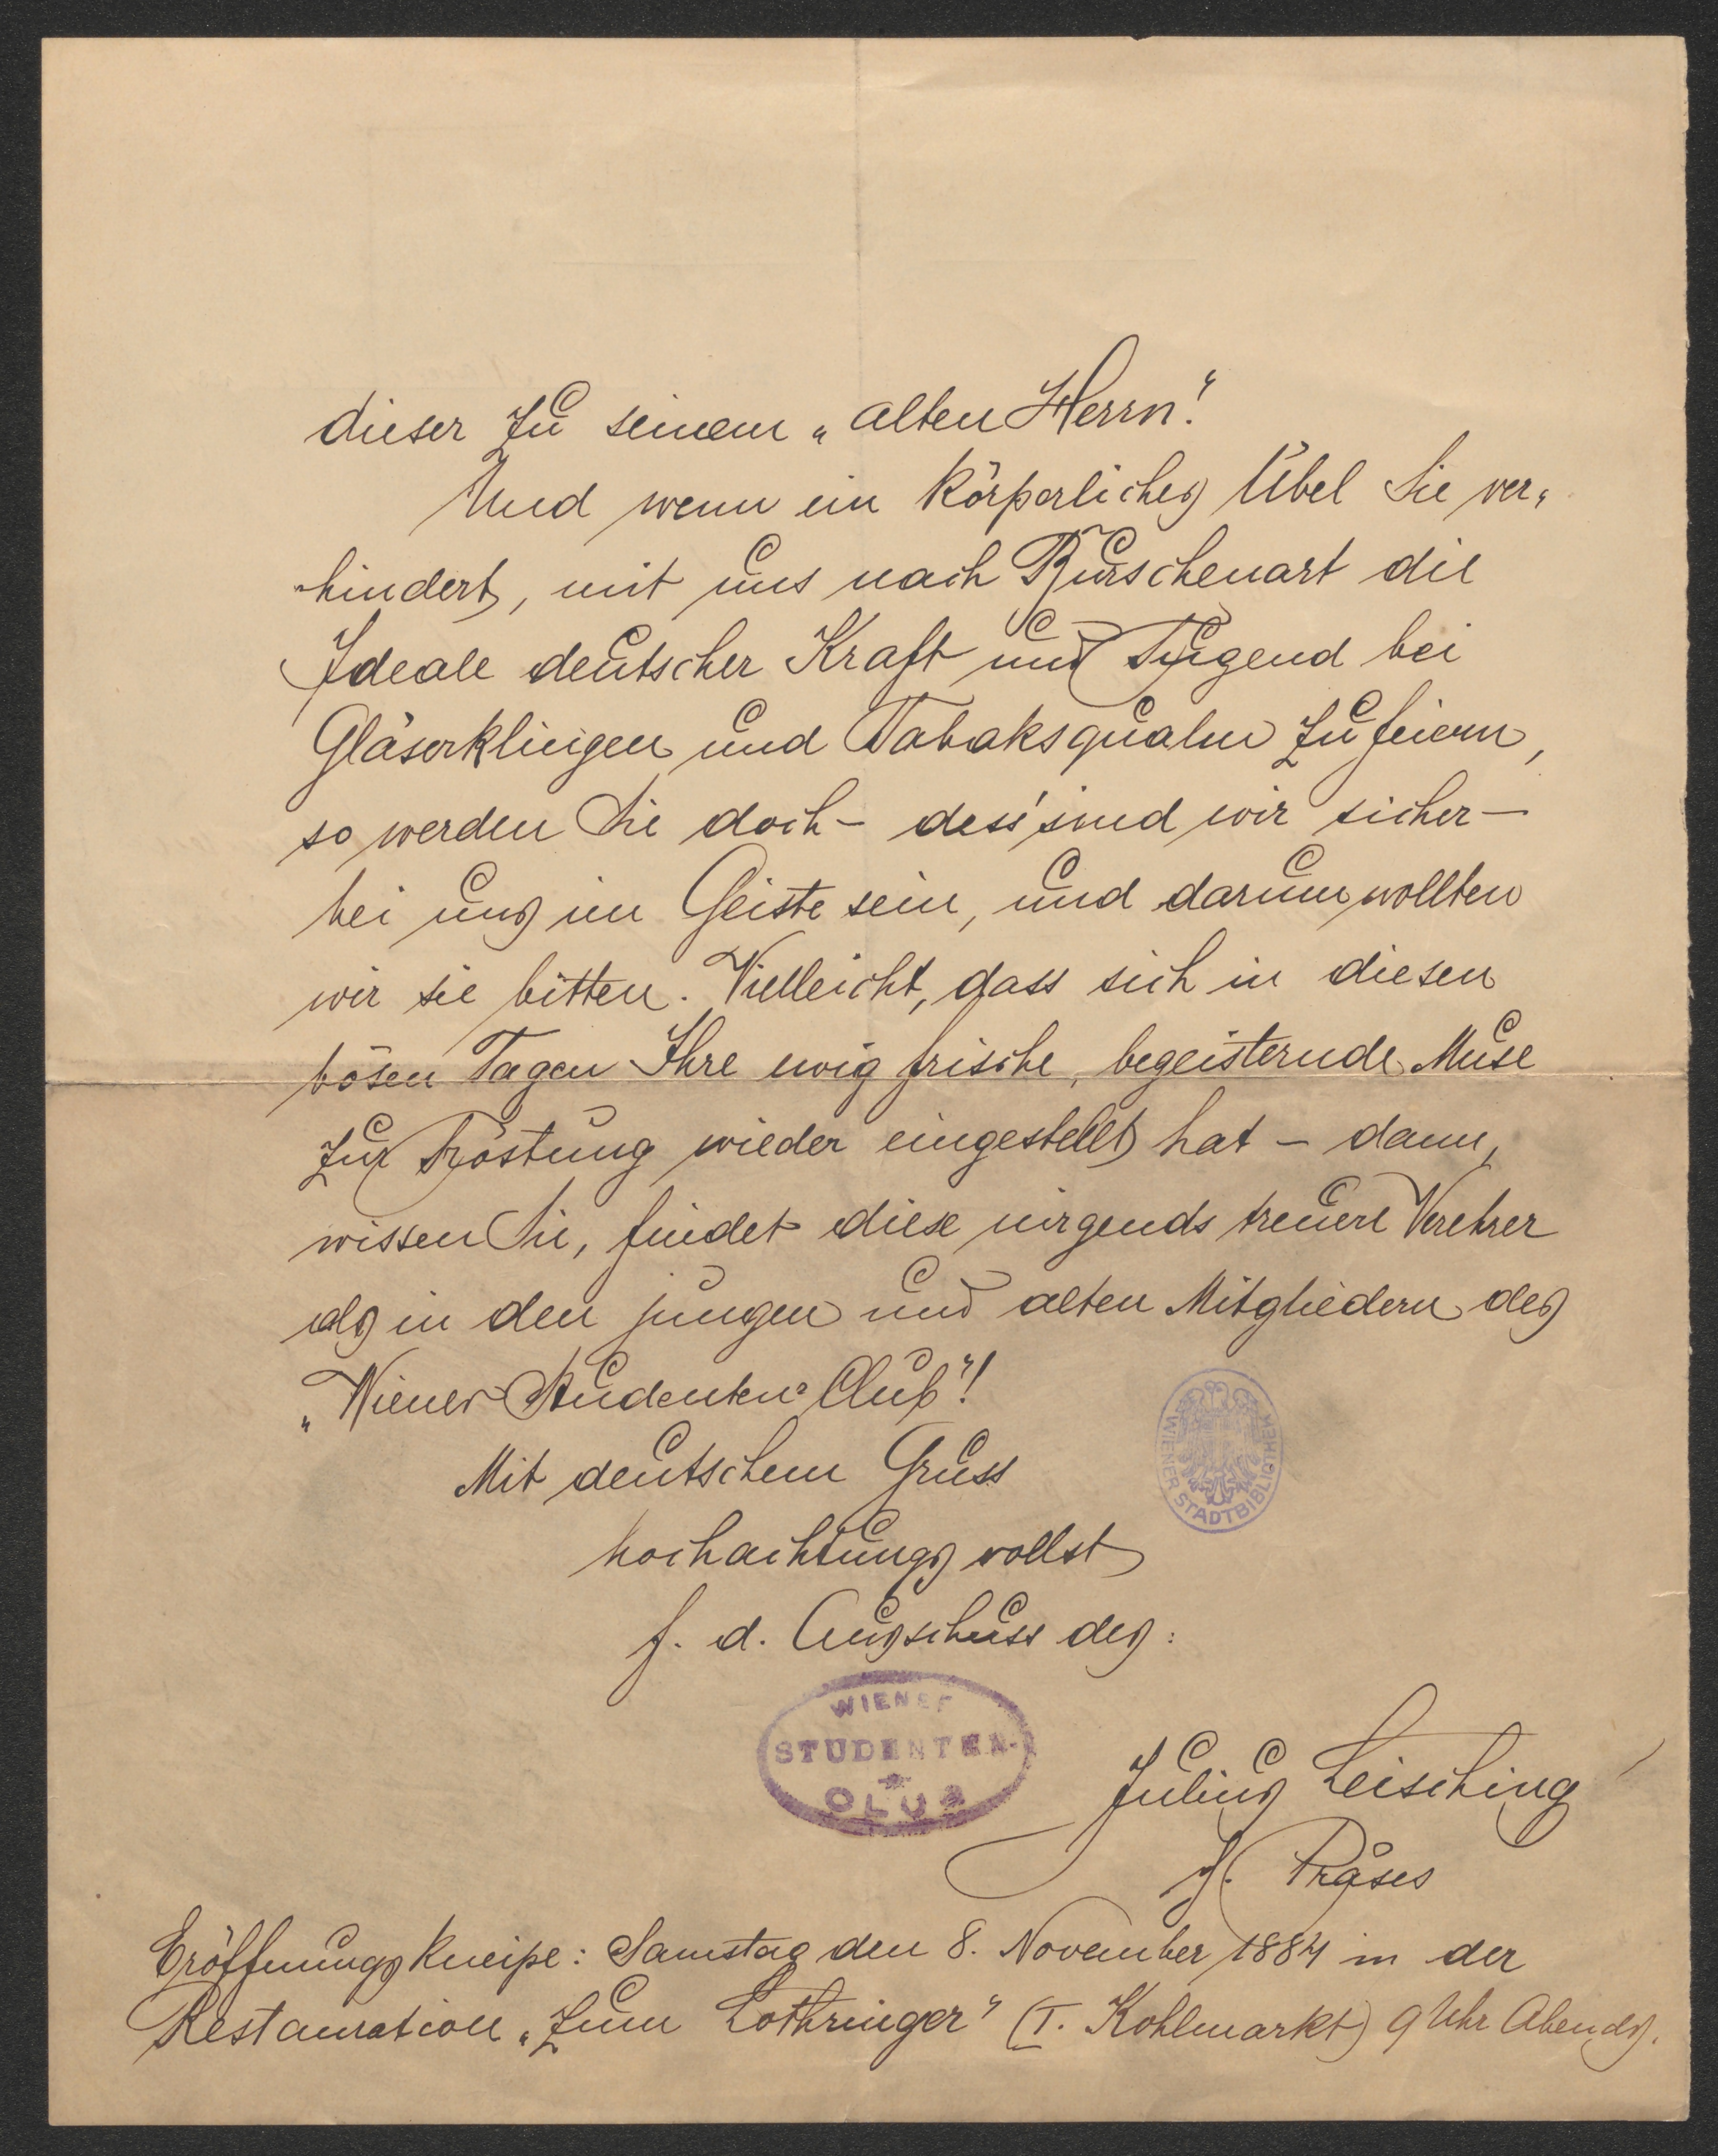 dieser zu seinem „alten Herrn“.
Und wenn ein körperliches Übel Sie ver-
hindert, mit uns nach Burschenart die
Ideale deutscher Kraft und Tugend bei
Gläserklingen und Tabaksqualm zu feiern,
so werden Sie doch – dess' sind wir sicher –
bei uns im Geiste sein, und darum wollten
wir sie bitten. Vielleicht, dass sich in diesen
bösen Tagen Ihre ewig frische, begeisternde Muse
zur Tröstung wieder eingestellt hat – dann,
wissen Sie, findet diese nirgends treuere Verehrer
als in den jungen und alten Mitgliedern des
„Wiener Studenten-Club“!
Mit deutschem Gruss
hochachtungsvollst
f. d. Ausschuss des:
WIENER STADTBIBLIOTHEK
WIENER
STUDENTEN-
CLUB
Julius Leisching
Präses
Eröffnungskneipe: Samstag den 8. November 1884 in der
Restauration „Zum Lothringer“ (I. Kohlmarkt) 9 Uhr Abends.